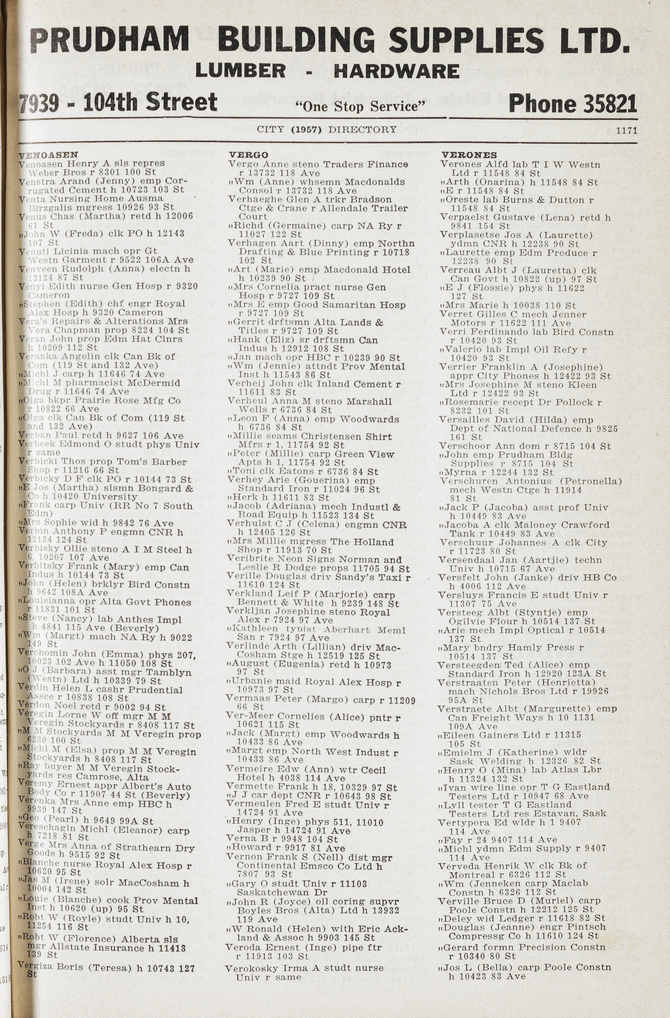 PRUDHAM BUILDING SUPPLIES LTD.
LUMBER - HARDWARE
7939 - 104th Street "One Stop Service" Phone 35821
CITY (1957) DIRECTORY 1171
VENOASEN
Venoasen Henry A sls repres
Weber Bros r 8301 100 St
Venstra Arand (Jenny) emp Cor-
rugated Cement h 10723 103 St
Venta Nursing Home Ausma
Birzgalis mgress 10926 93 St
Venus Chas (Martha) retd h 12006
61 St
„John W (Freda) clk PO h 12143
107 St
Venuti Licinia mach opr Gt
Westn Garment r 9522 106A Ave
Venveen Rudolph (Anna) electn h
12124 87 St
Venyi Edith nurse Gen Hosp r 9320
Cameron
„Stephen (Edith) chf engr Royal
Alex Hosp h 9320 Cameron
Vera's Repairs & Alterations Mrs
Vera Chapman prop 8224 104 St
Veran John prop Edm Hat Clnrs
h 10209 112 St
Veranka Angelin clk Can Bk of
Com (119 St and 132 Ave)
„Michl J carp h 11646 74 Ave
„Michl M pharmacist McDermid
Drug r 11646 74 Ave
„Olga bkpr Prairie Rose Mfg Co
r 10822 66 Ave
„Olga clk Can Bk of Com (119 St
and 132 Ave)
Verban Paul retd h 9627 106 Ave
Verbeek Edmond O studt phys Univ
r same
Verbicki Thos prop Tom's Barber
Shop r 11216 66 St
Verbicky D F clk PO r 10144 73 St
„E Jos (Martha) slsmn Bongard &
Co h 10420 University
„Frank carp Univ (RR No 7 South
Edm)
„Mrs Sophie wid h 9842 76 Ave
Verbin Anthony P engmn CNR h
12134 124 St
Verbisky Ollie steno A I M Steel h
10207 107 Ave
Verbitsky Frank (Mary) emp Can
Indus h 10144 73 St
„John (Helen) brklyr Bird Constn
h 9642 108A Ave
„Louisianna opr Alta Govt Phones
r 11831 101 St
„Steve (Nancy) lab Anthes Impl
h 4841 115 Ave (Beverly)
„Wm (Margt) mach NA Ry h 9022
149 St
Verchomin John (Emma) phys 207,
10023 102 Ave h 11050 108 St
„O J (Barbara) asst mgr Tamblyn
(Westn) Ltd h 10339 79 St
Verdin Helen L cashr Prudential
Assce r 10838 108 St
Verdon Noel retd r 9002 94 St
Veregin Lorne W off mgr M M
Veregin Stockyards r 8408 117 St
„M M Stockyards M M Veregin prop
6230 100 St
„Michl M (Elsa) prop M M Veregin
Stockyards h 8408 117 St
„Ray buyer M M Veregin Stock-
yards res Camrose, Alta
Veremy Ernest appr Albert's Auto
Body Co r 11907 44 St (Beverly)
Verenka Mrs Anne emp HBC h
9939 147 St
„Geo (Pearl) h 9649 99A St
Vereschagin Michl (Eleanor) carp
h 7218 81 St
Verge Mrs Anna of Strathearn Dry
Goods h 9515 92 St
„Blanche nurse Royal Alex Hosp r
10620 95 St
„Jas M (Irene) solr MacCosham h
10004 142 St
„Louie (Blanche) cook Prov Mental
Inst h 10620 (up) 95 St
„Robt W (Royle) studt Univ h 10,
11254 116 St
„Robt W (Florence) Alberta sls
mgr Allstate Insurance h 11413
139 St
Vergiza Boris (Teresa) h 10743 127
St
VERGO
Vergo Anne steno Traders Finance
r 13732 118 Ave
„Wm (Anne) whsemn Macdonalds
Consol r 13732 118 Ave
Verhaeghe Glen A trkr Bradson
Ctge & Crane r Allendale Trailer
Court
„Richd (Germaine) carp NA Ry r
11027 122 St
Verhagen Aart (Dinny) emp Northn
Drafting & Blue Printing r 10718
102 St
„Art (Marie) emp Macdonald Hotel
h 10239 90 St
„Mrs Cornelia pract nurse Gen
Hosp r 9727 109 St
„Mrs E emp Good Samaritan Hosp
r 9727 109 St
„Gerrit drftsmn Alta Lands &
Titles r 9727 109 St
„Hank (Eliz) sr drftsmn Can
Indus h 12912 108 St
„Jan mach opr HBC r 10239 90 St
„Wm (Jennie) attndt Prov Mental
Inst h 11543 86 St
Verheij John clk Inland Cement r
11611 83 St
Verheul Anna M steno Marshall
Wells r 6736 84 St
„Leon F (Anna) emp Woodwards
h 6736 84 St
„Millie seams Christensen Shirt
Mfrs r 1, 11754 92 St
„Peter (Millie) carp Green View
Apts h 1, 11754 92 St
„Toni clk Eatons r 6736 84 St
Verhey Arie (Gouerina) emp
Standard Iron r 11024 96 St
„Herk h 11611 83 St
„Jacob (Adriana) mech Industl &
Road Equip h 11523 134 St
Verhulst C J (Celena) engmn CNR
h 12405 126 St
„Mrs Millie mgress The Holland
Shop r 11913 70 St
Veribrite Neon Signs Norman and
Leslie R Dodge props 11705 94 St
Verille Douglas driv Sandy's Taxi r
11610 124 St
Verkland Leif P (Marjorie) carp
Bennett & White h 9239 148 St
Verkljan Josephine steno Royal
Alex r 7924 97 Ave
„Kathleen typist Aberhart Meml
San r 7924 97 Ave
Verlinde Arth (Lillian) driv Mac-
Cosham Stge h 12519 125 St
„August (Eugenia) retd h 10973
97 St
„Urbanie maid Royal Alex Hosp r
10973 97 St
Vermaas Peter (Margo) carp r 11209
66 St
Ver-Meer Cornelies (Alice) pntr r
10621 115 St
„Jack (Margt) emp Woodwards h
10433 86 Ave
„Margt emp North West Indust r
10433 86 Ave
Vermeire Edw (Ann) wtr Cecil
Hotel h 4038 114 Ave
Vermette Frank h 18, 10329 97 St
„J J car dept CNR r 10643 98 St
Vermeulen Fred E studt Univ r
14724 91 Ave
„Henry (Inge) phys 511, 11010
Jasper h 14724 91 Ave
Verna B r 9948 104 St
„Howard r 9917 81 Ave
Vernon Frank S (Nell) dist mgr
Continental Emsco Co Ltd h
7807 93 St
„Gary O studt Univ r 11103
Saskatchewan Dr
„John R (Joyce) oil coring supvr
Boyles Bros (Alta) Ltd h 13932
119 Ave
„W Ronald (Helen) with Eric Ack-
land & Assoc h 9903 145 St
Veroda Ernest (Inge) pipe ftr
r 11913 103 St
Verokosky Irma A studt nurse
Univ r same
VERONES
Verones Alfd lab T I W Westn
Ltd r 11548 84 St
„Arth (Onarina) h 11548 84 St
„E r 11548 84 St
„Oreste lab Burns & Dutton r
11548 84 St
Verpaelst Gustave (Lena) retd h
9841 154 St
Verplasetse Jos A (Laurette)
ydmn CNR h 12238 90 St
„Laurette emp Edm Produce r
12238 90 St
Verreau Albt J (Lauretta) clk
Can Govt h 10822 (up) 97 St
„E J (Flossie) phys h 11622
127 St
„Mrs Marie h 10038 110 St
Verret Gilles C mech Jenner
Motors r 11622 111 Ave
Verri Ferdinando lab Bird Constn
r 10420 93 St
„Valerio lab Impl Oil Refy r
10420 93 St
Verrier Franklin A (Josephine)
appr City Phones h 12422 93 St
„Mrs Josephine M steno Kleen
Ltd r 12422 93 St
„Rosemarie recept Dr Pollock r
8232 101 St
Versailles David (Hilda) emp
Dept of National Defence h 9825
161 St
Verschoor Ann dom r 8715 104 St
„John emp Prudham Bldg
Supplies r 8715 104 St
„Myrna r 12244 132 St
Verschuren Antonius (Petronella)
mech Westn Ctge h 11914
81 St
„Jack P (Jacoba) asst prof Univ
h 10449 83 Ave
„Jacoba A clk Maloney Crawford
Tank r 10449 83 Ave
Verschuur Johannes A clk City
r 11723 80 St
Versendaal Jan (Aartjie) techn
Univ h 10715 67 Ave
Versfelt John (Janke) driv HB Co
h 4006 112 Ave
Versluys Francis E studt Univ r
11307 75 Ave
Versteeg Albt (Styntje) emp
Ogilvie Flour h 10514 137 St
„Arie mech Impl Optical r 10514
137 St
„Mary bndry Hamly Press r
10514 137 St
Versteegden Ted (Alice) emp
Standard Iron h 12920 123A St
Verstraaten Peter (Henrietta)
mach Nichols Bros Ltd r 19926
95A St
Verstraete Albt (Margurette) emp
Can Freight Ways h 10 1131
109A Ave
„Eileen Gainers Ltd r 11315
105 St
„Emielm J (Katherine) wldr
Sask Welding h 12326 82 St
„Henry O (Mina) lab Atlas Lbr
h 11324 132 St
„Ivan wire line opr T G Eastland
Testers Ltd r 10947 68 Ave
„Lyll tester T G Eastland
Testers Ltd res Estavan, Sask
Vertypora Ed wldr h 1 9407
114 Ave
„Fay r 24 9407 114 Ave
„Michl ydmn Edm Supply r 9407
114 Ave
Verveda Henrik W clk Bk of
Montreal r 6326 112 St
„Wm (Jenneken carp Maclab
Constn h 6326 112 St
Verville Bruce D (Muriel) carp
Poole Constn h 12212 125 St
„Deley wid Ledger r 11618 82 St
„Douglas (Jeanne) engr Pintsch
Compressg Co h 11610 124 St
„Gerard formn Precision Constn
r 10340 80 St
„Jos L (Bella) carp Poole Constn
h 10423 83 Ave